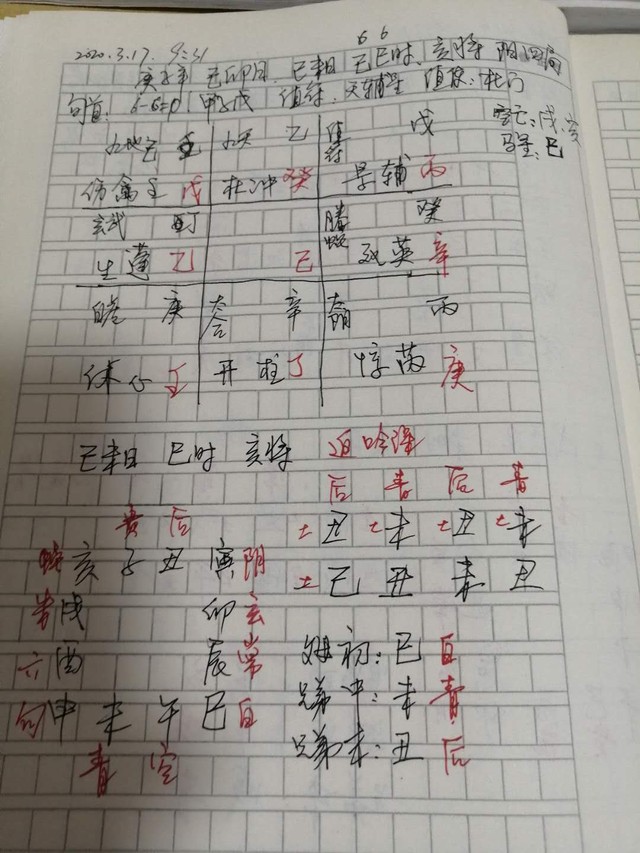 6 6
2020.3.17. 9:31
庚子年 己卯月 己未日 己巳时 亥将 阴四局
旬首: 6-6=0 甲子戊 值符:天辅星 值使:杜门
空亡:戌.亥
马星:巳
九地 九天 乙 值符 戊
戊 杜 冲 癸 景 辅 丙
玄武 丁 螣蛇 癸
生 蓬 乙 己 死 英 辛
庚 辛 丙
休 开 柱 丁 惊 芮 庚
己未日 巳时 亥将 返吟课
后 青 后 青
贵 后 土丑 土未 土丑 土未
蛇 亥 子 丑 寅 阴 土己 丑 未 丑
朱 戌 卯 玄
六 酉 辰 常 父母 初:巳 白
勾 申 未 午 巳 白 兄弟 中:未 青
青 空 兄弟 末:丑 后